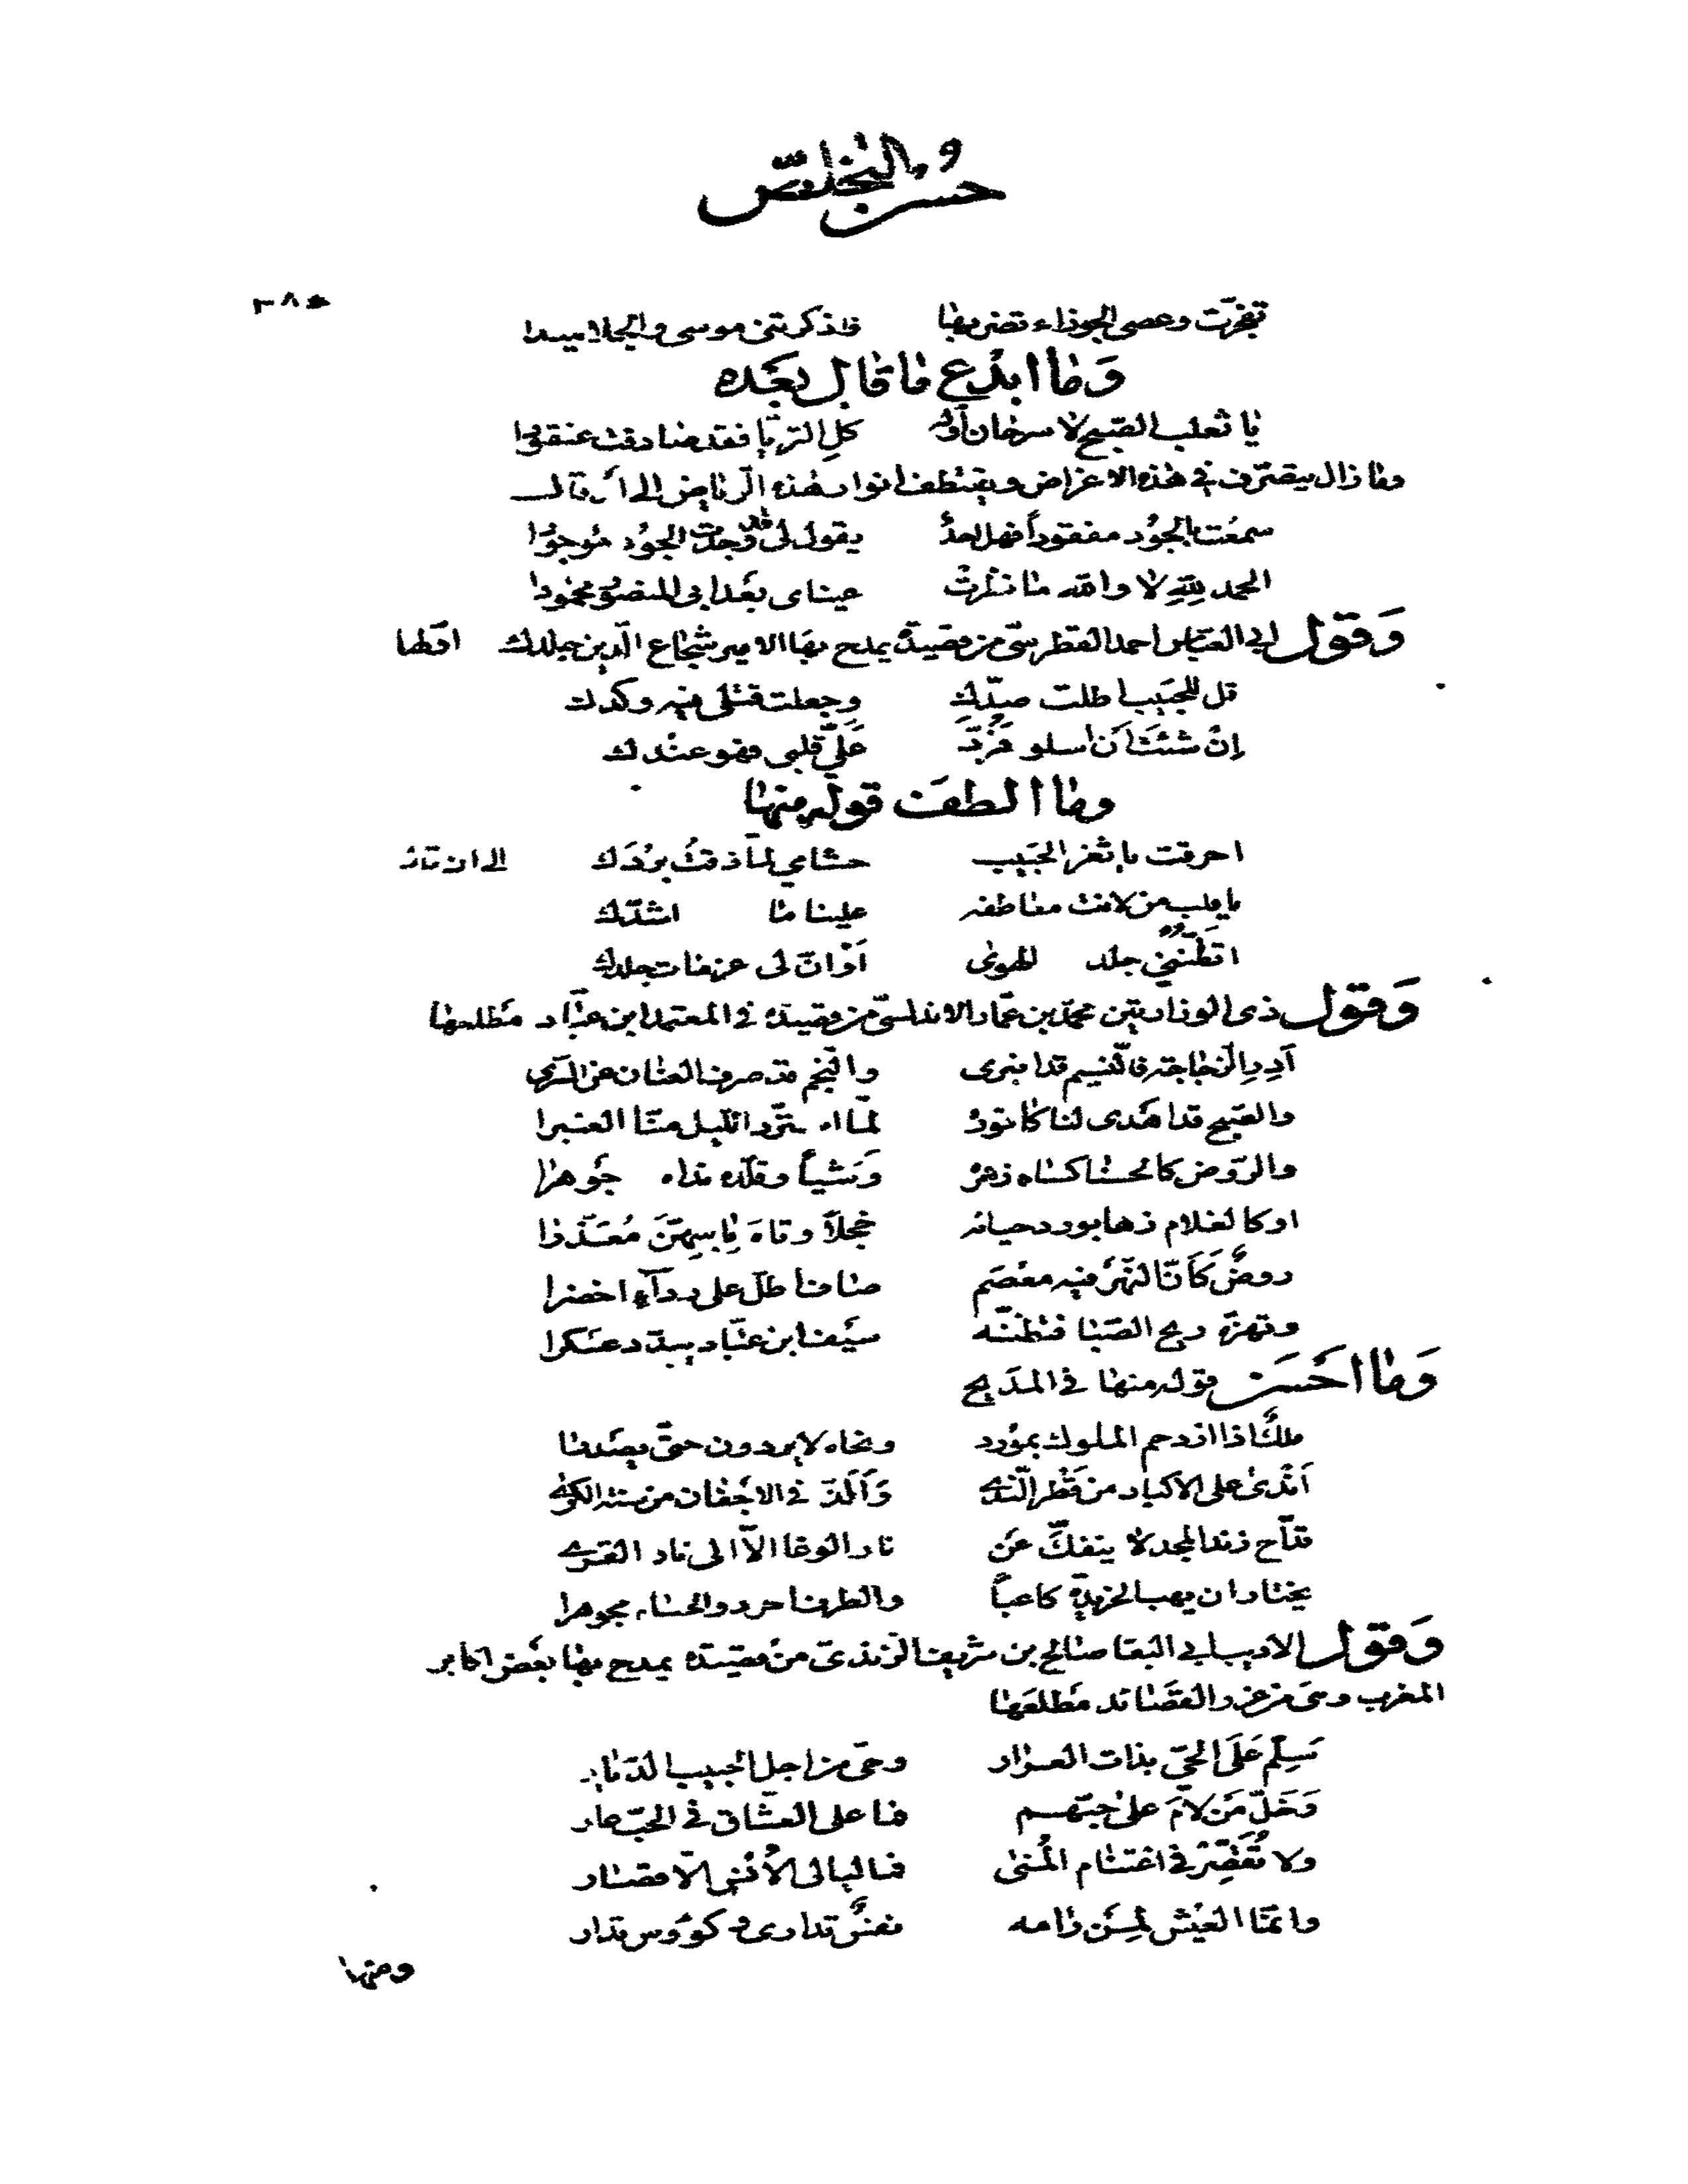 حُسن التخلّص
تفجّرت وعصى الجوزاء تضربها فاذكرتنى موسى والجلاميدا
وَما ابدَع ما قال بعَده
يا ثعلب الصّبح لا سرحان اوله كلِ الثريّا فقد صادفت عنقودا
وما زال يتصّرف فى هذه الاغراض ويقتطف انوار هذه الرّياض الى أن قال
سمعْت بالجُود مفقوداً فهل احدٌ يقول لى قد وجدْت الجُود مَوجوُدا
الحمد للهِ لا والله ما نظرتْ عيناى بعَد ابى المنصوُر محمُودا
وَقول ابى العبّاس احمد القطرسىّ من قصيدة يمدح بهَا الامير شجاع الدّين جلدك اوّلها
قل للحبَيب اطلت صدّك وجعلت قتلى فيه وكدك
اِنْ شئتَ اَن اسلو فَرُدّ عَلَيّ قلبى فهو عندك
وما الطفَ قوله منها
احرقت يا ثغر الحبَيب حشاي لمّا ذقتُ برْدَك الى ان قال
يا قلب من لانت معاطفه علينا ما اشدّك
اتظُنّني جلد الهوى اَوْ انّ لى عزمات جلدك
وَقول ذى الوزارتين محمّد بن عمّار الاندلسىّ من قصيدة فى المعتمد ابن عبّاد مَطلعها
اَدِرِ الزّجاجة فالنّسيم قد انبرى والنّجم قد صرف العنان عن السّرى
والصّبح قد اهَدى لنا كافورَه لمّا استرّد الليل منّا العنبرا
والرّوض كالحسنا كساه زهرُه وَشياً وقلّده نداه جَوهرا
او كالغلام زها بورد حيائه خجلاً وتاهَ باسِهنّ مُعَذّرا
روضٌ كَأنّ النّهرَ فيه معْصَم صاف اطلّ على رداءٍ اخضرا
وتهزّه ريح الصّبا فتظنّه سيَف ابن عبّاد يبدّد عسَكرا
وَما احْسَن قوله منها فى المدَيح
ملكٌ اذا ازدحم الملوك بموْرد ونحاه لا يردون حتىّ يصَدرا
اَندْىَ على الاكباد من قَطْر النّدى وَاَلَذّ فى الاجَفان من سنة الكرىَ
قدّاح زند المجد لا ينفكَّ عَن نار الوغا الاّ الى نار القرى
يختار ان يهب الخريدة كاعباً والطرف اجرد والحسام مجوهرا
وَقول الاديب ابى البقا صالح بن شريف الرّندىّ من قصيَدة يمدح بها بعَض اكابر
المغرب وهىَ من غرر القصَائد مَطلعَها
سَلِّم عَلَى الحىّ بذات العرار وحىّ من اجل الحبيب الديار
وَخلّ مَن لاَمَ على حبّهم فما على العشّاق فى الحبّ عار
ولا تُقَصِّرْ فى اغتنام المُنى فما ليالى الاُنسِ الاّ قصار
وانمّا العَيْش لمِن رامه نفسٌ تدارى وكؤوس تدار
ومنها